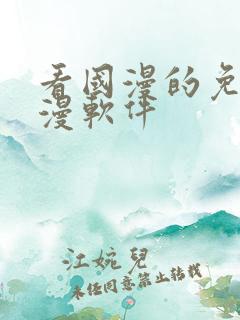 看國漫的免
漫軟件
江婉兒
未经同意禁止转载